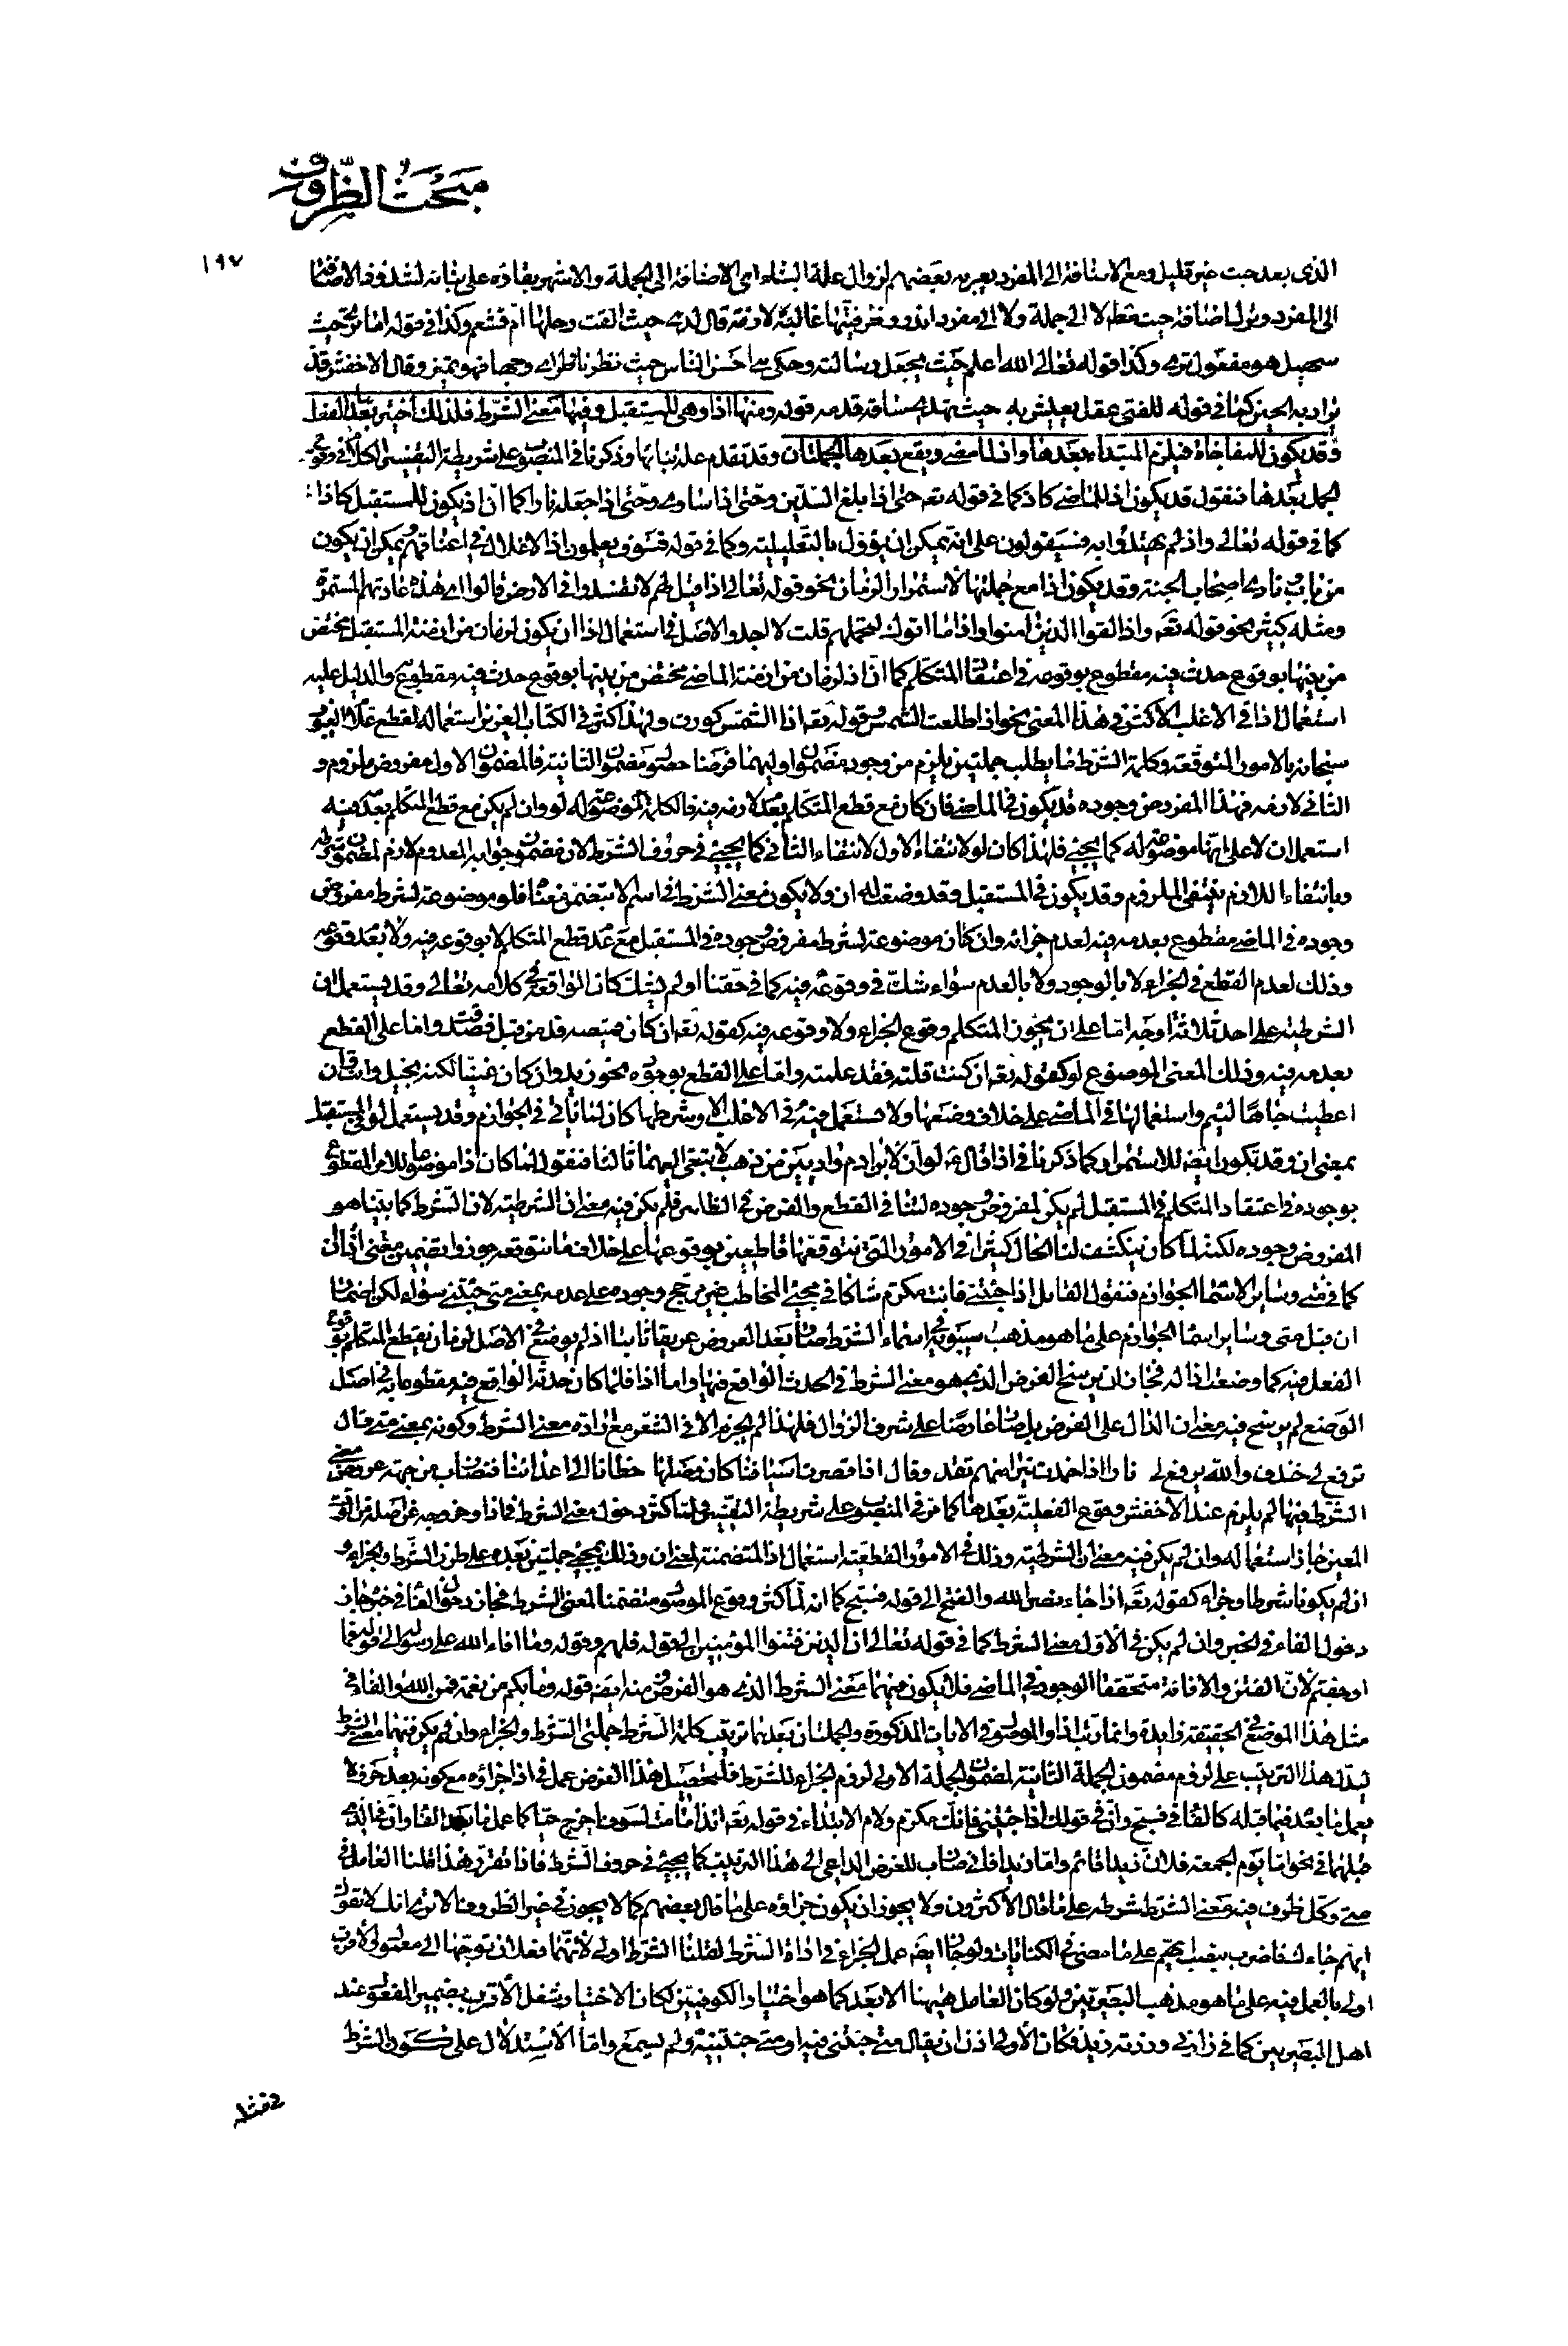 مبحث الظروف
١٩٧
الذى بعد حيث خبر قليل ومع الاضافة الى المفرد يعربه بعضهم لزوال علة البناء اى الاضافة الى الجملة والاشهر بقاؤه على بنائه لشذوذ الاضافة
الى المفرد وترك اضافة حيث مطلقا لا الى جملة ولا الى مفرد اندر وظرفيتها غالبة لا لازمة قال لدى حيث القت رحلها ام قشعم وكذا فى قوله اما ترى حيث
سهيل هو مفعول ترى وكذا قوله تعالى الله اعلم حيث يجعل رسالته وحكى هى احسن الناس حيث نظر ناظر اى وجها فهو تميز وقال الاخفش قد
يراد به الحين كما فى قوله للفتى عقل يعيش به حيث تهدى ساقه قدمه قوله ومنها اذا وهى للمستقبل وفيها معنى الشرط فلذلك اختير بعدها الفعل
وقد يكون للمفاجاة فيلزم المبتداء بعدها واذ لما مضى ويقع بعدها الجملتان وقد تقدم علة بنائها وذكرنا فى المنصوب على شريطة التفسير الكلام فى وقوع
الجمل بعدها فنقول قد يكون اذا للماضى كاذ كما فى قوله تعه حتى اذا بلغ السدين وحتى اذا ساوى وحتى اذا جعله نارا كما ان اذ يكون للمستقبل كاذا
كما فى قوله تعالى واذ لم يهتدوا به فسيقولون على انه يمكن ان يؤول بالتعليلية وكما فى قوله فسوف يعلمون اذ الاغلال فى اعناقهم ويمكن ان يكون
من باب نادى اصحاب الجنة وقد يكون اذا مع جملتها لاستمرار الزمان نحو قوله تعالى اذا قيل لهم لا تفسدوا فى الارض قالوا اى هذا عادتهم المستمرة
ومثله كثير نحو قوله تعه واذا لقوا الذين امنوا واذا ما اتوك لتحملهم قلت لا اجد والاصل فى استعمال اذا ان يكون لزمان من ازمنة المستقبل مختص
من بينها بوقوع حدث فيه مقطوع بوقوعه فى اعتقاد المتكلم كما ان اذ لزمان من ازمنة الماضى مختص من بينها بوقوع حدث فيه مقطوع والدليل عليه
استعمال اذا فى الاغلب الاكثر فى هذا المعنى نحو اذا طلعت الشمس وقوله تعه اذا الشمس كورت ولهذا كثر فى الكتاب العزيز استعماله لقطع علام الغيوب
سبحانه بالامور المتوقعة وكلمة الشرط ما يطلب جملتين يلزم من وجود مضمون اوليهما فرضا حصول مضمون الثانية فالمضمون الاول مفروض ملزوم و
الثانى لازمه فهذا المفروض وجوده قد يكون فى الماضى فان كان مع قطع المتكلم بعدم لازمه فيه فالكلمة الموضوعة له لو وان لم يكن مع قطع المتكلم بعدمه فيه
استعمل ان لا على انها موضوعة له كما يجيئ فلهذا كان لو لانتفاء الاول لانتفاء الثانى كما يجيئ فى حروف الشرط لان مضمون جوابه المعدوم لازم لمضمون شرطه
وبانتفاء اللازم ينتفى الملزوم وقد يكون فى المستقبل وقد وضعت له ان ولا يكون معنى الشرط فى اسم الا بتضمن معناها فلو موضوعة لشرط مفروض
وجوده فى الماضى مقطوع بعدمه فيه لعدم جزائه وان كان موضوعة لشرط مفروض وجوده فى المستقبل مع عدم قطع المتكلم لا بوقوعه فيه ولا بعدم وقوعه
وذلك لعدم القطع فى الجزاء لا بالوجود ولا بالعدم سواء شك فى وقوعه فيه كما فى حقنا او لم يشك كان الواقعة فى كلامه تعالى وقد يستعمل ان
الشرطية على احد ثلاثة اوجه اما على ان يجوز المتكلم وقوع الجزاء ولا وقوعه فيه كقوله تعه ان كان قميصه قد من قبل فصدقت واما على القطع
بعدمه فيه وذلك المعنى الموضوع لو كقوله تعه ان كنت قلته فقد علمته واما على القطع بوجوده نحو زيد وان كان غنيا لكنه بخيل وانت وان
اعطيت جاها لئيم واستعمالها فى الماضى على خلاف وضعها ولا تستعمل فيه فى الاغلب الا وشرطها كان لما ياتى فى الجوازم وقد يستعمل لو فى المستقبل
بمعنى ان وقد تكون ايضه للاستمرار كما ذكرنا فى اذا قال عه لو ان لابن ادم واديين من ذهب لابتغى اليهما ثالثا فنقول لما كان اذا موضوعا للامر المقطوع
بوجوده فى اعتقاد المتكلم فى المستقبل لم يكن لمفروض وجوده لتنافى القطع والفرض فى الظاهر فلم يكن فيه معنى ان الشرطية لان الشرط كما بيننا هو
المفروض وجوده لكنه لما كان ينكشف لنا الحال كثيرا فى الامور التى نتوقعها قاطعين بوقوعها على خلاف ما نتوقعه جوزوا تضمين معنى ان
كما فى متى وسائر الاسماء الجوازم فنقول القائل اذا جئتنى فانت مكرم شاكا فى مجيئ المخاطب غير مرجح وجوده على عدمه بمعنى متى جئتنى سواء لكن اضمار
ان قبل متى وسائر اسماء الجوازم على ما هو مذهب سيبويه فى اسماء الشرط صار بعد العروض عريقا ثابتا اذ لم يوضع فى الاصل لزمان يقطع المتكلم بوقوع
الفعل فيه كما وضعت اذا له فجاز ان يرسخ الفرض الذى هو معنى الشرط فى الحدث الواقع فيها واما اذا فلما كان حدثه الواقع فيه مقطوعا به فى اصل
الوضع لم يرسخ فيه معنى ان الدال على الفرض بل صار عارضا على شرف الزوال فلهذا لم يجزم الا فى الشعر مع ارادة معنى الشرط وكونه بمعنى متى قال
ترفع لى خندف والله يرفع لى نارا اذا خمدت نيرانهم تقد وقال اذا قصرت اسيافنا كان وصلها خطانا الى اعدائنا فنضارب من جهة عروض معنى
الشرط فيها لم يلزم عند الاخفش وقوع الفعلية بعدها كما مر فى المنصوب على شريطة التفسير ولما كثر دخول معنى الشرط فى اذا وخروجه عن اصله من الوقت
المعين جاز استعماله وان لم يكن فيه معنى ان الشرطية وذلك فى الامور القطعية استعمال اذا المتضمنة لمعنى ان وذلك بمجيئ جملتين بعده على طرز الشرط والجزاء و
ان لم يكونا شرطا وجزاء كقوله تعه اذا جاء نصر الله والفتح الى قوله فسبح كما انه لما كثر وقوع الموصول متضمنا لمعنى الشرط فجاز دخول الفاء فى خبره جاز
دخول الفاء فى الخبر وان لم يكن فى الاول معنى الشرط كما فى قوله تعالى ان الذين فتنوا المؤمنين الى قوله فلهم وقوله وما افاء الله على رسوله الى قوله فما
اوجفتم لان الفتن والافاءة متحققا الوجود فى الماضى فلا يكون فيهما معنى الشرط الذى هو الفرض ومنه ايضه قوله وما بكم من نعمة فمن الله والفاء فى
مثل هذا الموضع فى الحقيقة زايدة وانما رتب اذا والموصول فى الايات المذكورة والجملتان بعدهما ترتيب كلمة الشرط جملتى الشرط والجزاء وان لم يكن فيهما معنى الشرط
ليدل هذا الترتيب على لزوم مضمون الجملة الثانية لمضمون الجملة الاولى لزوم الجزاء للشرط فلتحصيل هذا الغرض عمل فى اذا جزاؤه مع كونه بعد حرف لا
يعمل ما بعده فيما قبله كالفا فى فسبح وان فى قولك اذا جئتنى فانك مكرم ولام الابتداء فى قوله تعه ائذا ما مت لسوف اخرج حيا كما عمل ما بعد الفا وان فى الذى
قبلهما فى نحو اما يوم الجمعة فلان زيدا قائم واما زيدا فانى ضارب للغرض الداعى الى هذا الترتيب كما يجيئ فى حروف الشرط فاذا تقرر هذا قلنا العامل فى
متى وكل ظرف فيه معنى الشرط شرطه على ما قال الاكثرون ولا يجوز ان يكون جزاؤه على ما قال بعضهم كما لا يجوز فى غير الظروف الا ترى انك لا تقول
ايهم جاءك فاضرب بنصب ايهم على ما مضى فى الكنايات ولو جاز ايضه عمل الجزاء فى اداة الشرط لقلنا الشرط اولى لانهما فعلان توجها الى معمول والاقرب
اولى بالعمل فيه على ما هو مذهب البصريين ولو كان العامل هيهنا الابعد كما هو اختيار الكوفيين لكان الاختيار شغل الاقرب بضمير المفعول عند
اهل البصريين كما فى زارنى وزرته زيد فكان الاولى اذن ان يقال متى جئتنى فيه او متى جئتنيه ولم يسمع واما الاستدلال على كون الشرط